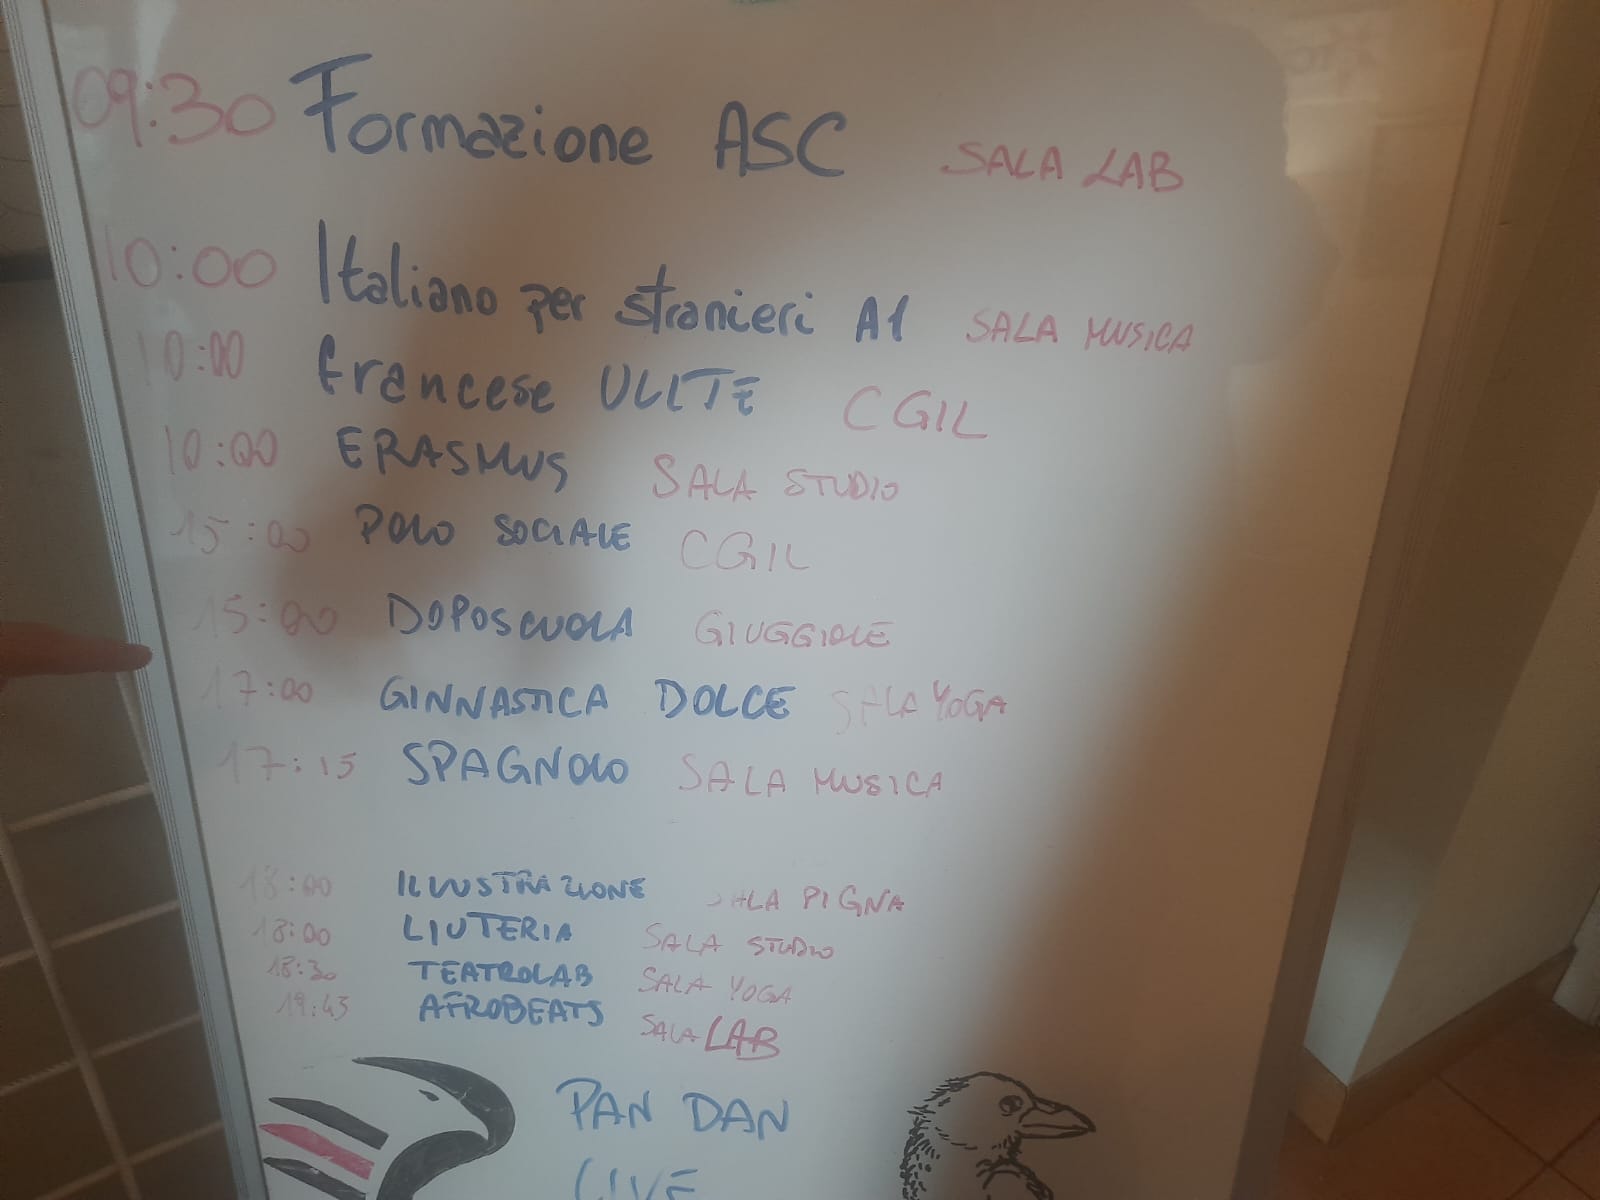 09:30 Formazione ASC SALA LAB
10:00 Italiano per stranieri A1 SALA MUSICA
10:00 francese ULITE CGIL
10:00 ERASMUS SALA STUDIO
15:00 POLO SOCIALE CGIL
15:00 DOPOSCUOLA GIUGGIOLE
17:00 GINNASTICA DOLCE SALA YOGA
17:15 SPAGNOLO SALA MUSICA
18:00 ILLUSTRAZIONE SALA PIGNA
18:00 LIUTERIA SALA STUDIO
18:30 TEATROLAB SALA YOGA
19:45 AFROBEATS SALA LAB
PAN DAN
LIVE